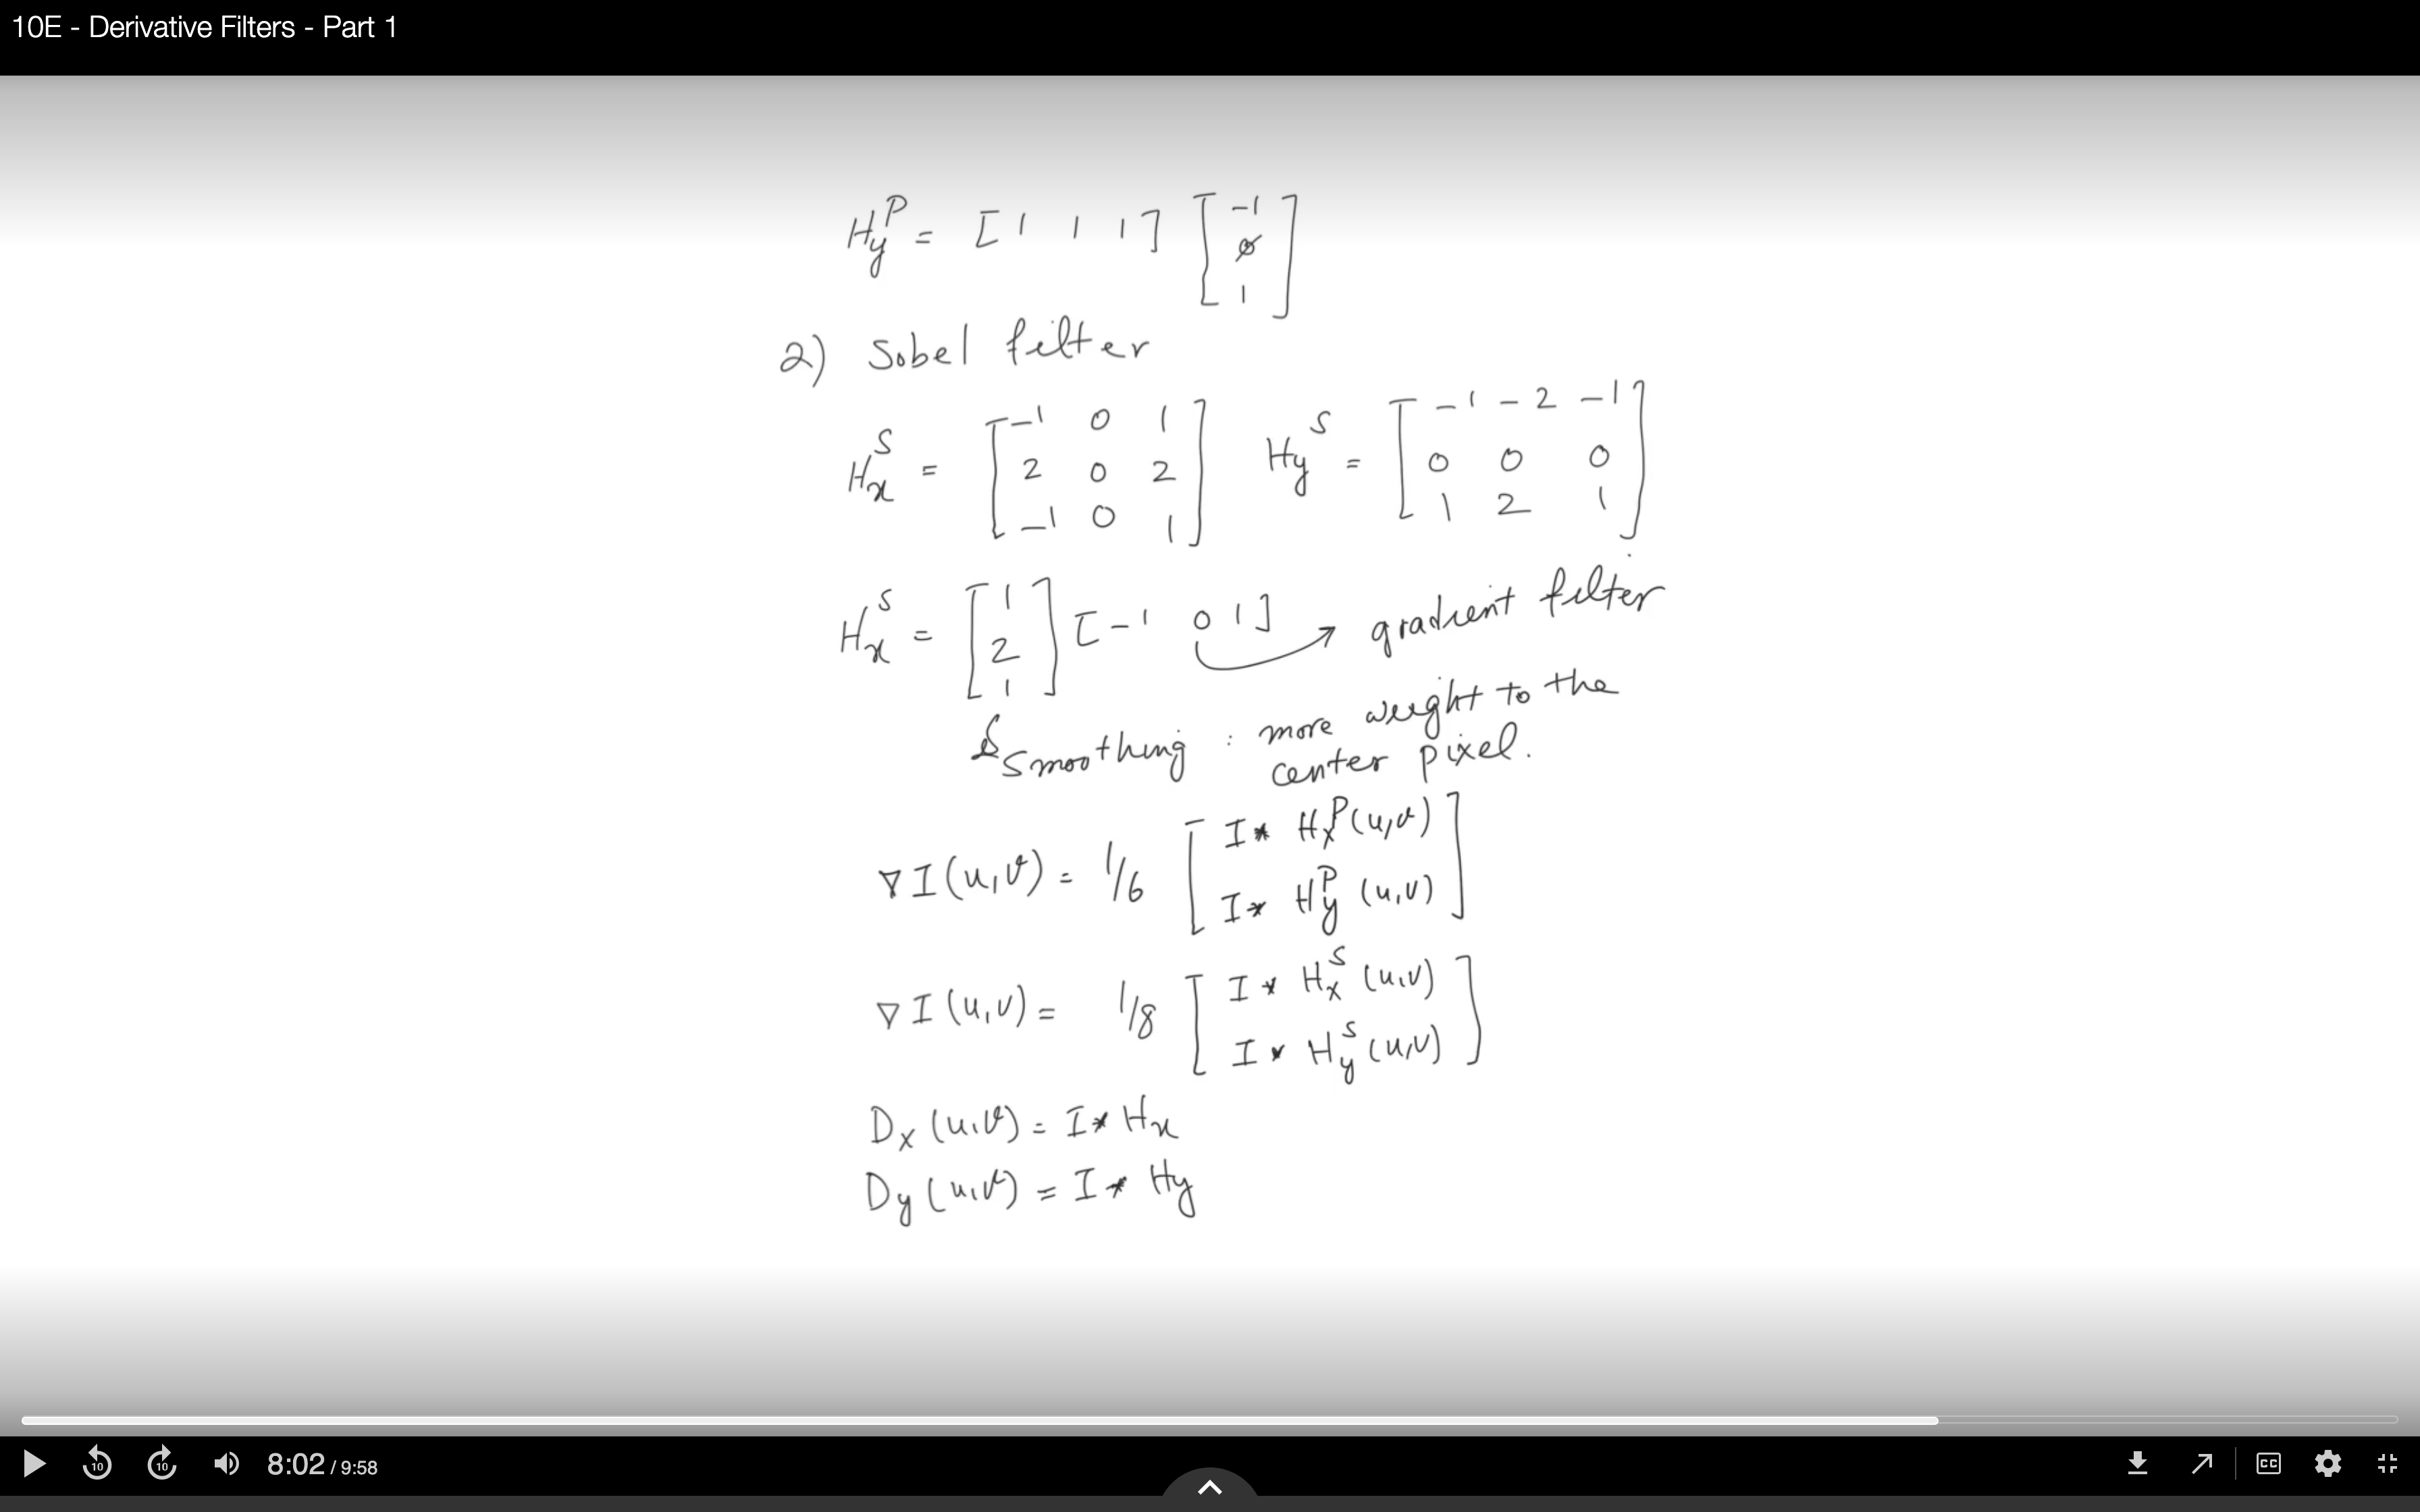 10E - Derivative Filters - Part 1
H_y^P = [1 1 1] [-1 0 1]
2) Sobel filter
H_x^S = [-1 0 1; 2 0 2; -1 0 1] H_y^S = [-1 -2 -1; 0 0 0; 1 2 1]
H_x^S = [1 2 1] [-1 0 1] → gradient filter
Smoothing : more weight to the
center pixel.
∇I(u,v) = 1/6 [I * H_x^P(u,v); I * H_y^P(u,v)]
∇I(u,v) = 1/8 [I * H_x^S(u,v); I * H_y^S(u,v)]
D_x(u,v) = I * H_x
D_y(u,v) = I * H_y
10 10 8:02 / 9:58 CC